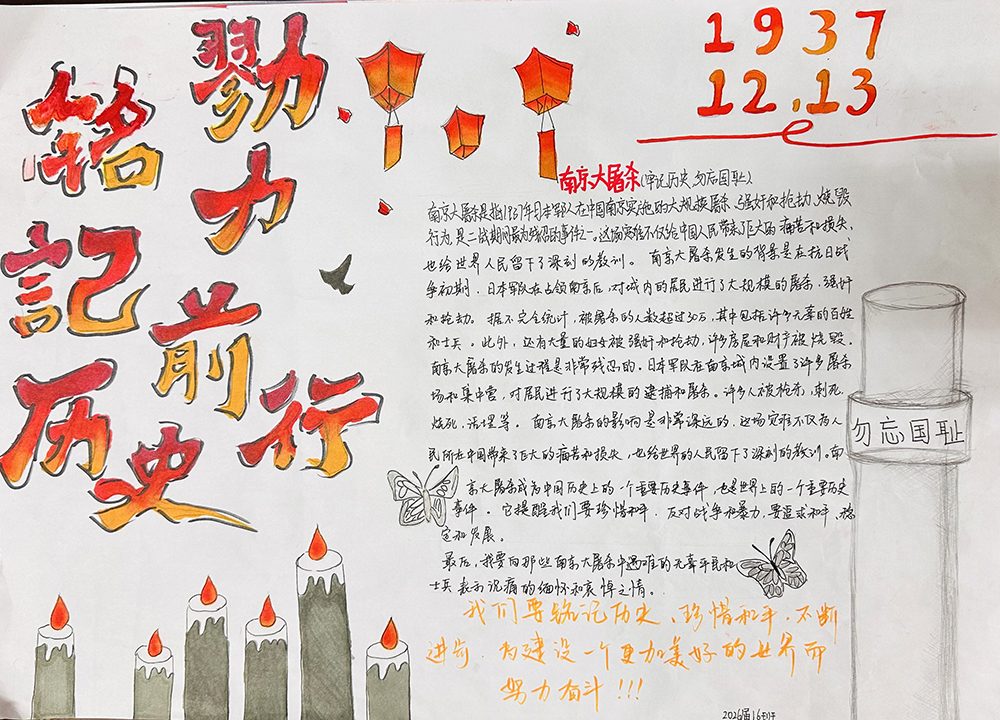 銘記历史
勠力前行
1937
12.13
南京大屠杀(牢记历史,勿忘国耻)
南京大屠杀是指1937年日本军队在中国南京实施的大规模屠杀、强奸和抢劫、烧毁
行为,是二战期间最为残忍的事件之一。这场灾难不仅给中国人民带来了巨大的痛苦和损失,
也给世界人民留下了深刻的教训。南京大屠杀发生的背景是在抗日战
争初期,日本军队在占领南京后,对城内的居民进行了大规模的屠杀、强奸
和抢劫。据不完全统计,被屠杀的人数超过30万,其中包括许多无辜的百姓
和士兵。此外,还有大量的妇女被强奸和抢劫,许多房屋和财产被烧毁。
南京大屠杀的发生过程是非常残忍的。日本军队在南京城内设置了许多屠杀
场和集中营,对居民进行了大规模的逮捕和屠杀。许多人被枪杀,刺死,
烧死,活埋等。南京大屠杀的影响是非常深远的,这场灾难不仅为人
民所在中国带来了巨大的痛苦和损失,也给世界的人民留下了深刻的教训。南
京大屠杀成为中国历史上的一个重要历史事件,也是世界上的一个重要历史
事件。它提醒我们要珍惜和平,反对战争和暴力,要追求和平、稳
定和发展。
最后,我要向那些南京大屠杀中遇难的无辜平民和
士兵表示沉痛的缅怀和哀悼之情。
我们要铭记历史、珍惜和平,不断
进步,为建设一个更加美好的世界而
努力奋斗!!!
勿忘国耻
2026届16班